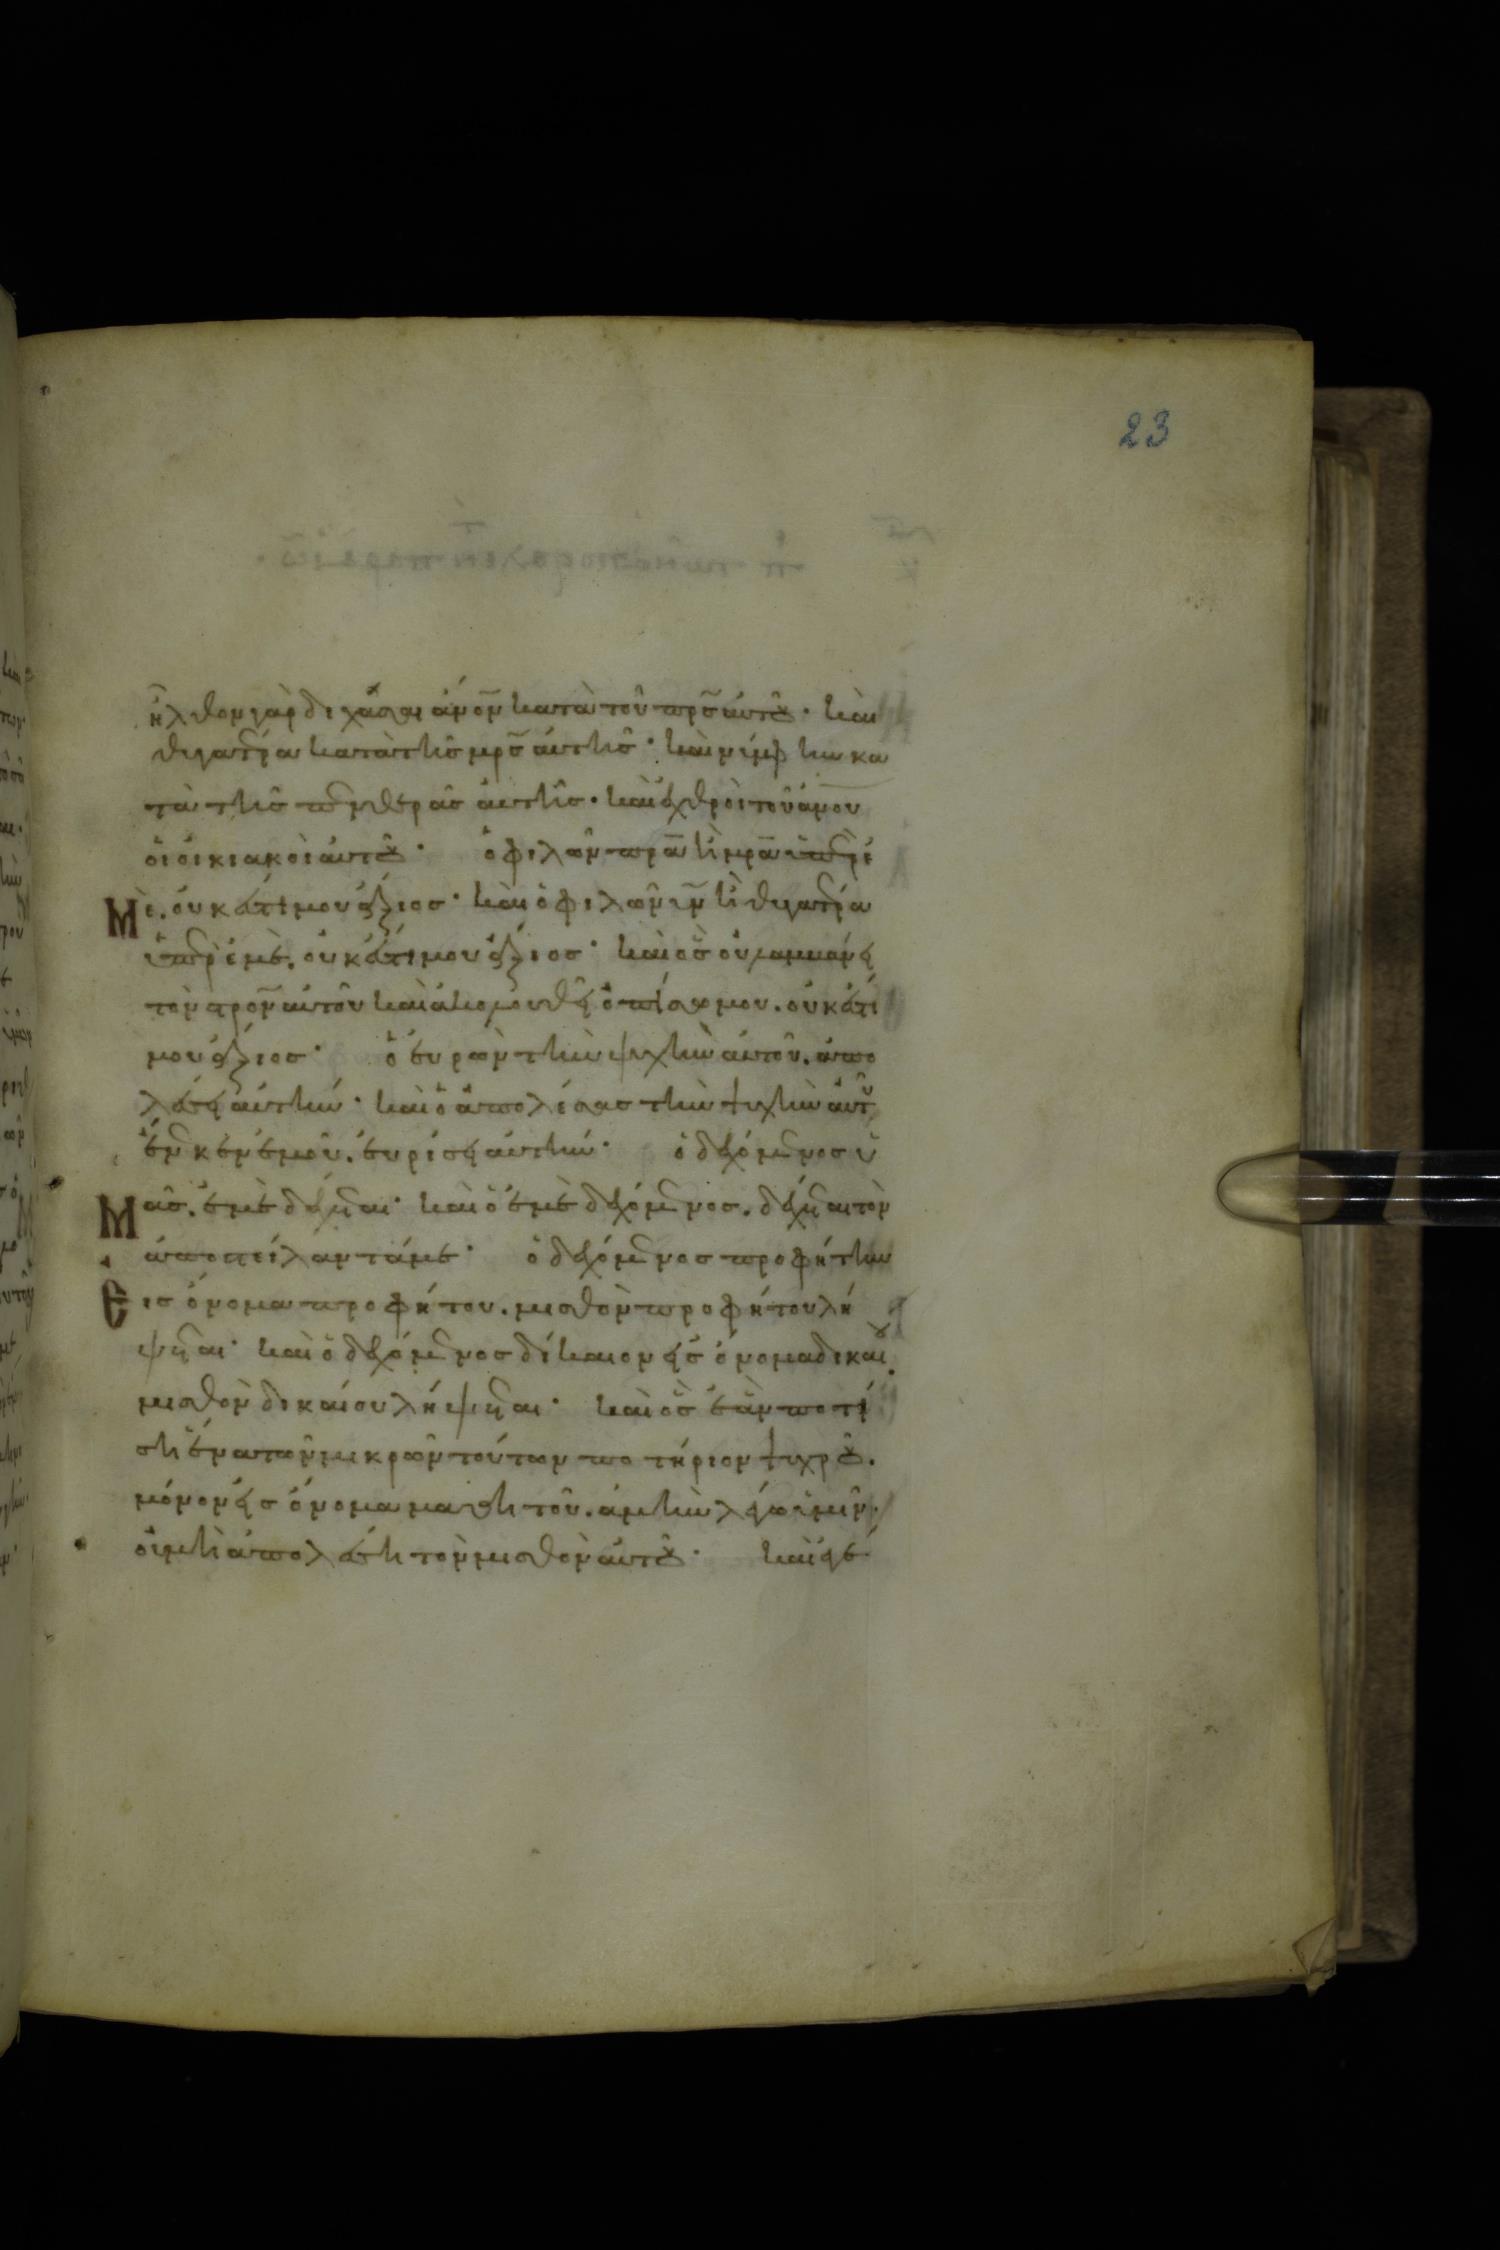 23
ἦλθον γὰρ διχάσαι ἄνον κατὰ τοῦ πρς αὐτοῦ · καὶ
θυγατέρα κατὰ τῆς μρς αὐτῆς · καὶ νύμφην κα
τὰ τῆς πενθερᾶς αὐτῆς · καὶ ἐχθροὶ τοῦ ἀνου
οἱ οἰκιακοὶ αὐτοῦ · ὁ φιλῶν πρα ἢ μρα ὑπὲρ ἐ
Μὲ. οὐκ ἔστι μου ἄξιος · καὶ ὁ φιλῶν υν ἢ θυγατέρα
ὑπὲρ ἐμὲ. οὐκ ἔστι μου ἄξιος · καὶ ὃς οὐ λαμβάνει
τὸν στρον αὐτοῦ καὶ ἀκολουθεῖ ὀπίσω μου. οὐκ ἔστι
μου ἄξιος · ὁ εὑρὼν τὴν ψυχὴν αὐτοῦ. ἀπο
λέσει αὐτήν · καὶ ὁ ἀπολέσας τὴν ψυχὴν αὐτοῦ
ἕνεκεν ἐμοῦ. εὑρήσει αὐτήν · ὁ δεχόμενος ὑ
Μᾶς. ἐμὲ δέχεται · καὶ ὁ ἐμὲ δεχόμενος. δέχεται τὸν
ἀποστείλαντά με · ὁ δεχόμενος προφήτην
Εἰς ὄνομα προφήτου. μισθὸν προφήτου λή
ψεται · καὶ ὁ δεχόμενος δίκαιον εἰς ὄνομα δικαίου.
μισθὸν δικαίου λήψεται · καὶ ὃς ἐὰν ποτί
ση ἕνα τῶν μικρῶν τούτων ποτήριον ψυχροῦ.
μόνον εἰς ὄνομα μαθητοῦ. ἀμὴν λέγω ὑμῖν.
οὐ μὴ ἀπολέση τὸν μισθὸν αὐτοῦ · καὶ ἐγέ